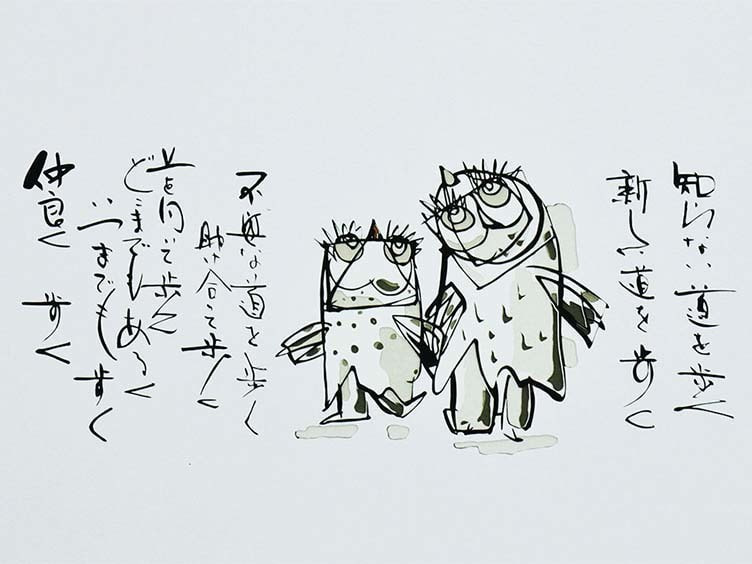 知らない道を歩く
新しい道を歩く
不安な道を歩く
助け合って歩く
上を向いて歩く
どこまでもあるく
いつまでも歩く
仲良く歩く